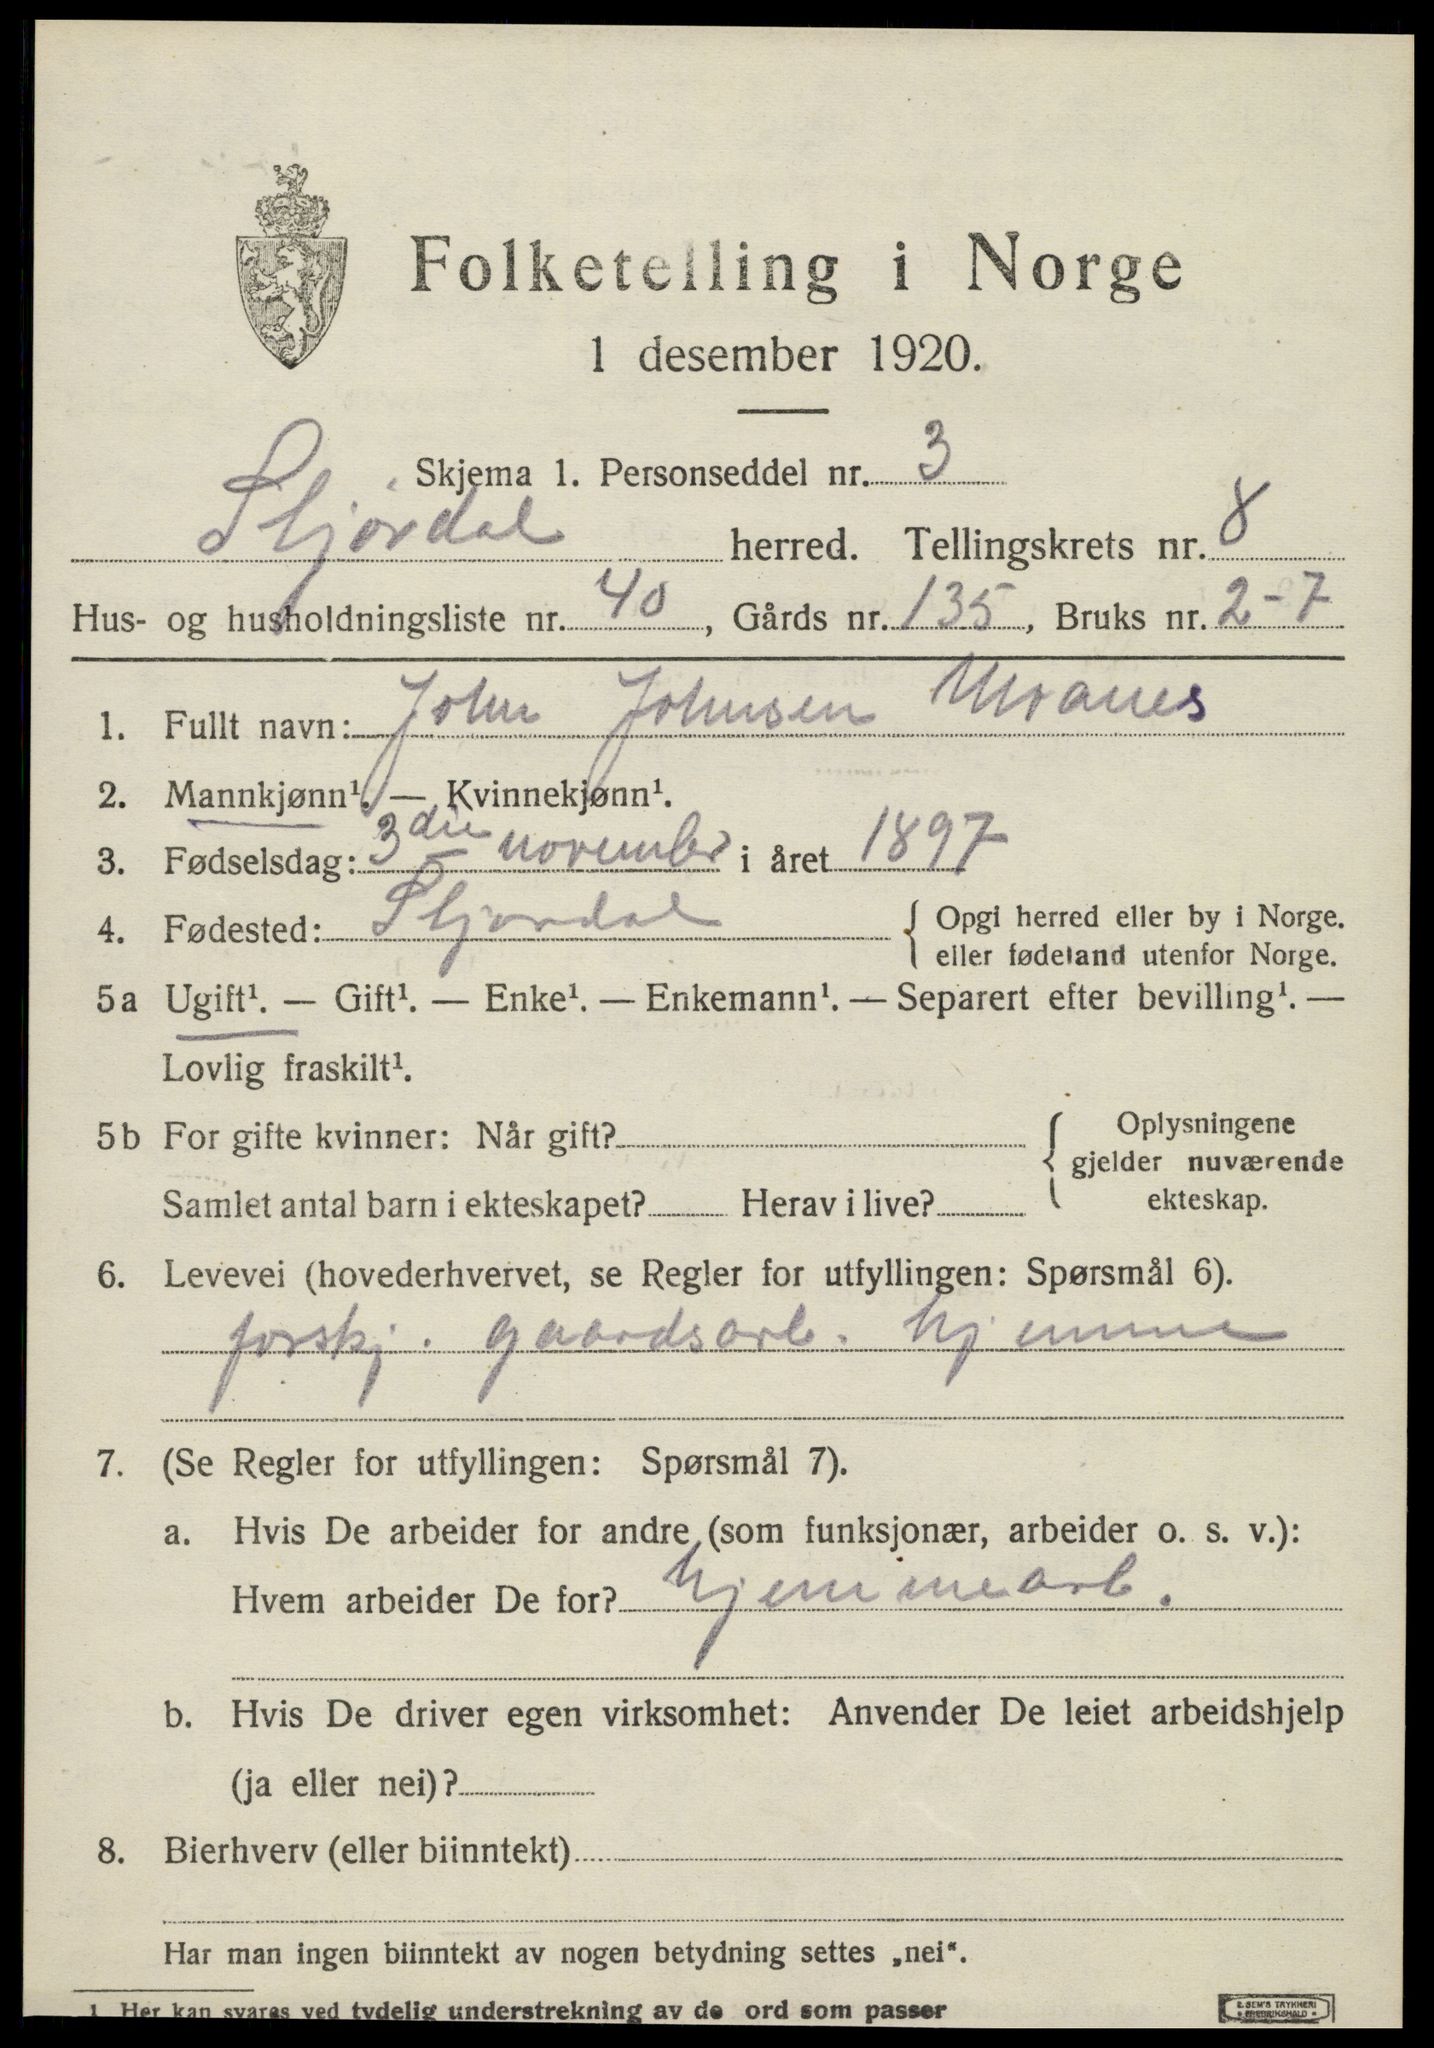 Folketelling i Norge
1 desember 1920.
Skjema 1. Personseddel nr. 3
Stjørdal herred. Tellingskrets nr. 8
Hus- og husholdningsliste nr. 40, Gårds nr. 135, Bruks nr. 2-7
1. Fullt navn: John Johnsen
2. Mannkjønn¹. — Kvinnekjønn¹.
3. Fødselsdag: 3die november i året 1897
4. Fødested: Stjørdal { Opgi herred eller by i Norge.
eller fødeland utenfor Norge.
5a Ugift¹. — Gift¹. — Enke¹. — Enkemann¹. — Separert efter bevilling¹. —
Lovlig fraskilt¹.
5b For gifte kvinner: Når gift? { Oplysningene
gjelder nuværende
Samlet antal barn i ekteskapet? Herav i live? ekteskap.
6. Levevei (hovederhvervet, se Regler for utfyllingen: Spørsmål 6).
forskj. gaardsarb. hjemme
7. (Se Regler for utfyllingen: Spørsmål 7).
a. Hvis De arbeider for andre (som funksjonær, arbeider o. s. v.):
Hvem arbeider De for? hjemmearb.
b. Hvis De driver egen virksomhet: Anvender De leiet arbeidshjelp
(ja eller nei)?
8. Bierhverv (eller biinntekt)
Har man ingen biinntekt av nogen betydning settes „nei“.
1 Her kan svares ved tydelig understrekning av de ord som passer
E. SEM'S TRYKKERI
FREDRIKSHALD